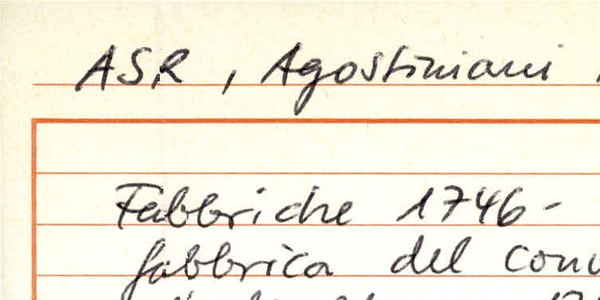 ASR, Agostiniani
Fabbriche 1746-
fabbrica del